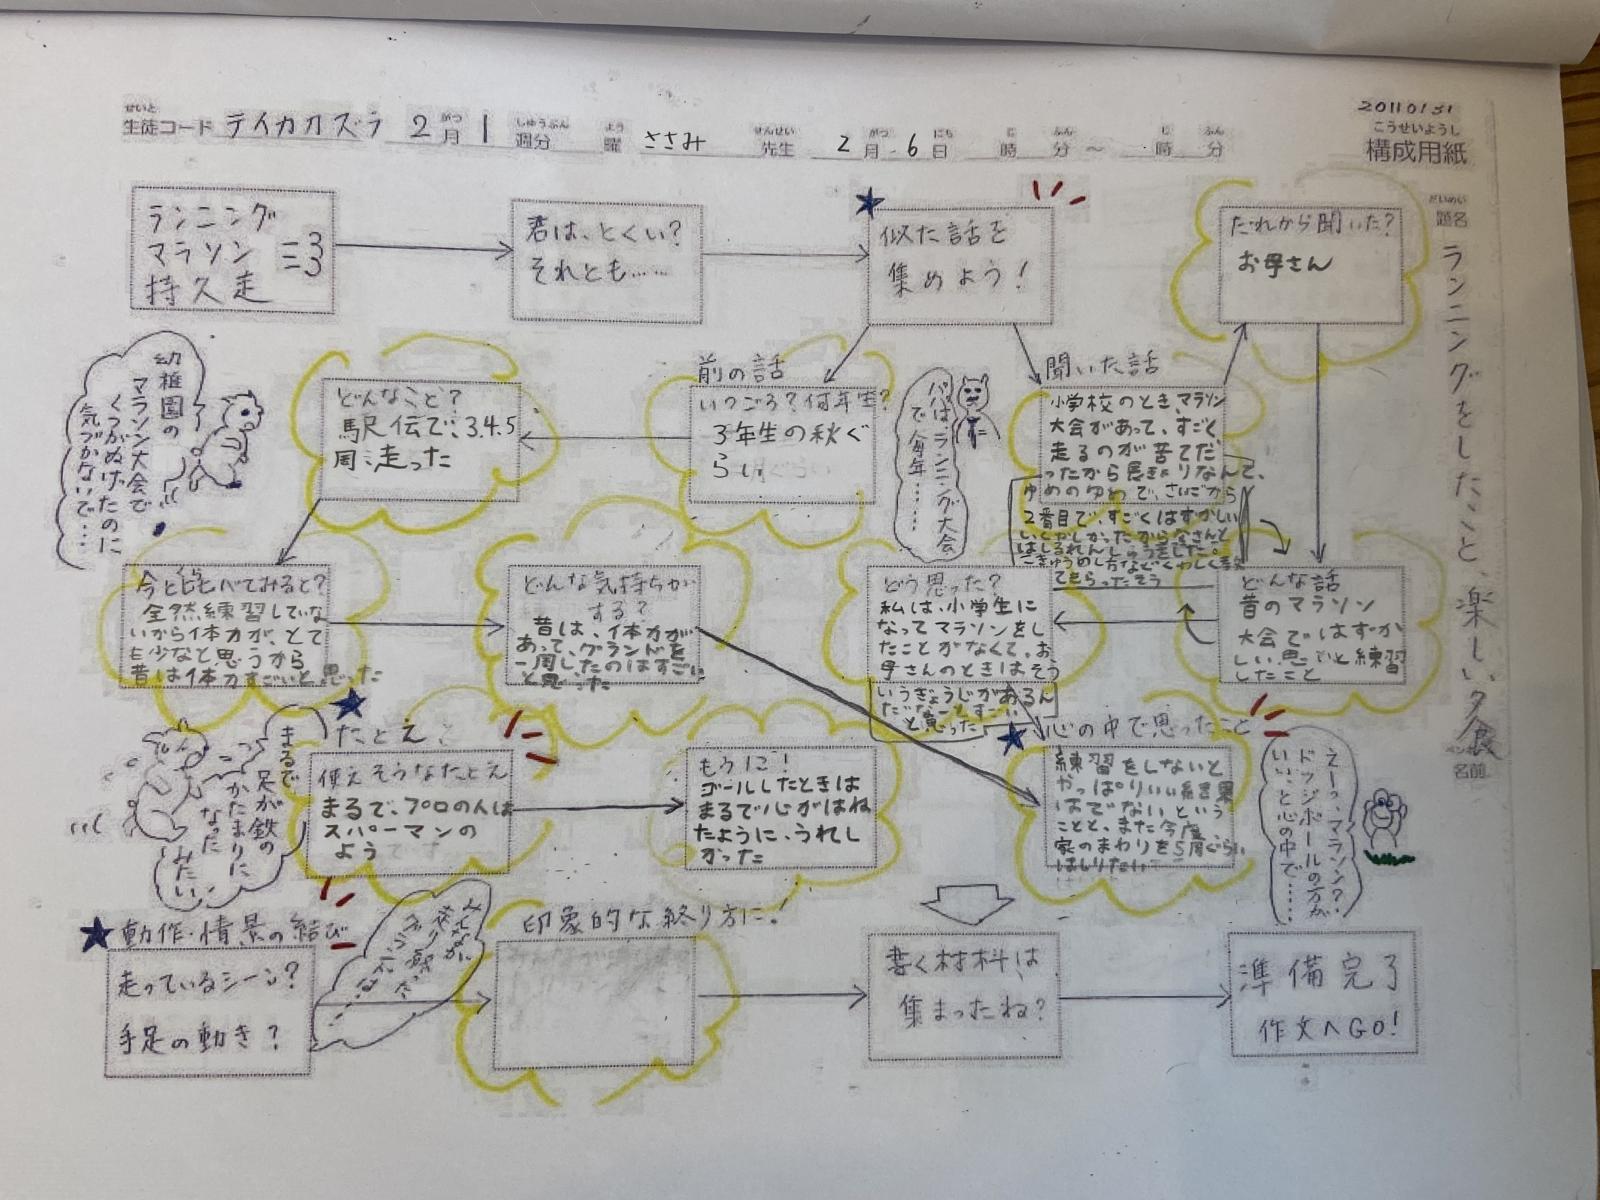 20110131
せいと がつ しゅうぶん よう せんせい がつ にち じ ふん じ ふん こうせいようし
生徒コード テイカカズラ 2月 1 週分 曜 ささみ 先生 2月 6日 時 分 ~ 時 分 構成用紙
だいめい
題名
ランニングをしたこと、楽しい夕食
ペンネーム
名前
ランニング
マラソン
持久走
=3
君は、とくい?
それとも……
似た話を
集めよう!
だれから聞いた?
お母さん
幼稚園の
マラソン大会で
くつがぬげたのに
気づかないで…
どんなこと?
駅伝で、3.4.5
周走った
前の話
いつごろ?何年生?
3年生の秋ぐ
らい
パパはランニング大会
で毎年……
聞いた話
小学校のとき、マラソン
大会があって、すごく
走るのが苦てだ
ったから長きょりなんて、
ゆめのゆめで、さいごから
2番目で、すごくはずかしい
はしるれんしゅうをした。
今と比べてみると?
くら
全然練習していな
いから体力が、とて
も少なと思うから
昔は体力すごいと思った
どんな気持ちが
する?
昔は、体力が
あって、グランドを
一周したのはすごい
と思った
どう思った?
私は、小学生に
なってマラソンをし
たことがなくて、お
母さんのときはそう
いうぎょうじがあるん
だなーとすーい
と思った
どんな話
昔のマラソン
大会ではずか
しい思いと練習
したこと
まるで
足が鉄の
かたまりに
なった
みたい
たとえ
使えそうなたとえ
まるで、プロの人は
スパーマンの
よう
もう1こ!
ゴールしたときは
まるで心がはね
たように、うれし
かった
心の中で思ったこと
練習をしないと
やっぱりいい結果
はでないという
ことと、また今度
家のまわりを5周ぐらい
はしりたい
えーっ、マラソン?
ドッジボールの方が
いい、と心の中で……
動作・情景の結び
走っているシーン?
手足の動き?
みんなが
走り終った
印象的な終り方に!
書く材料は
集まったね?
準備完了
作文へGO!